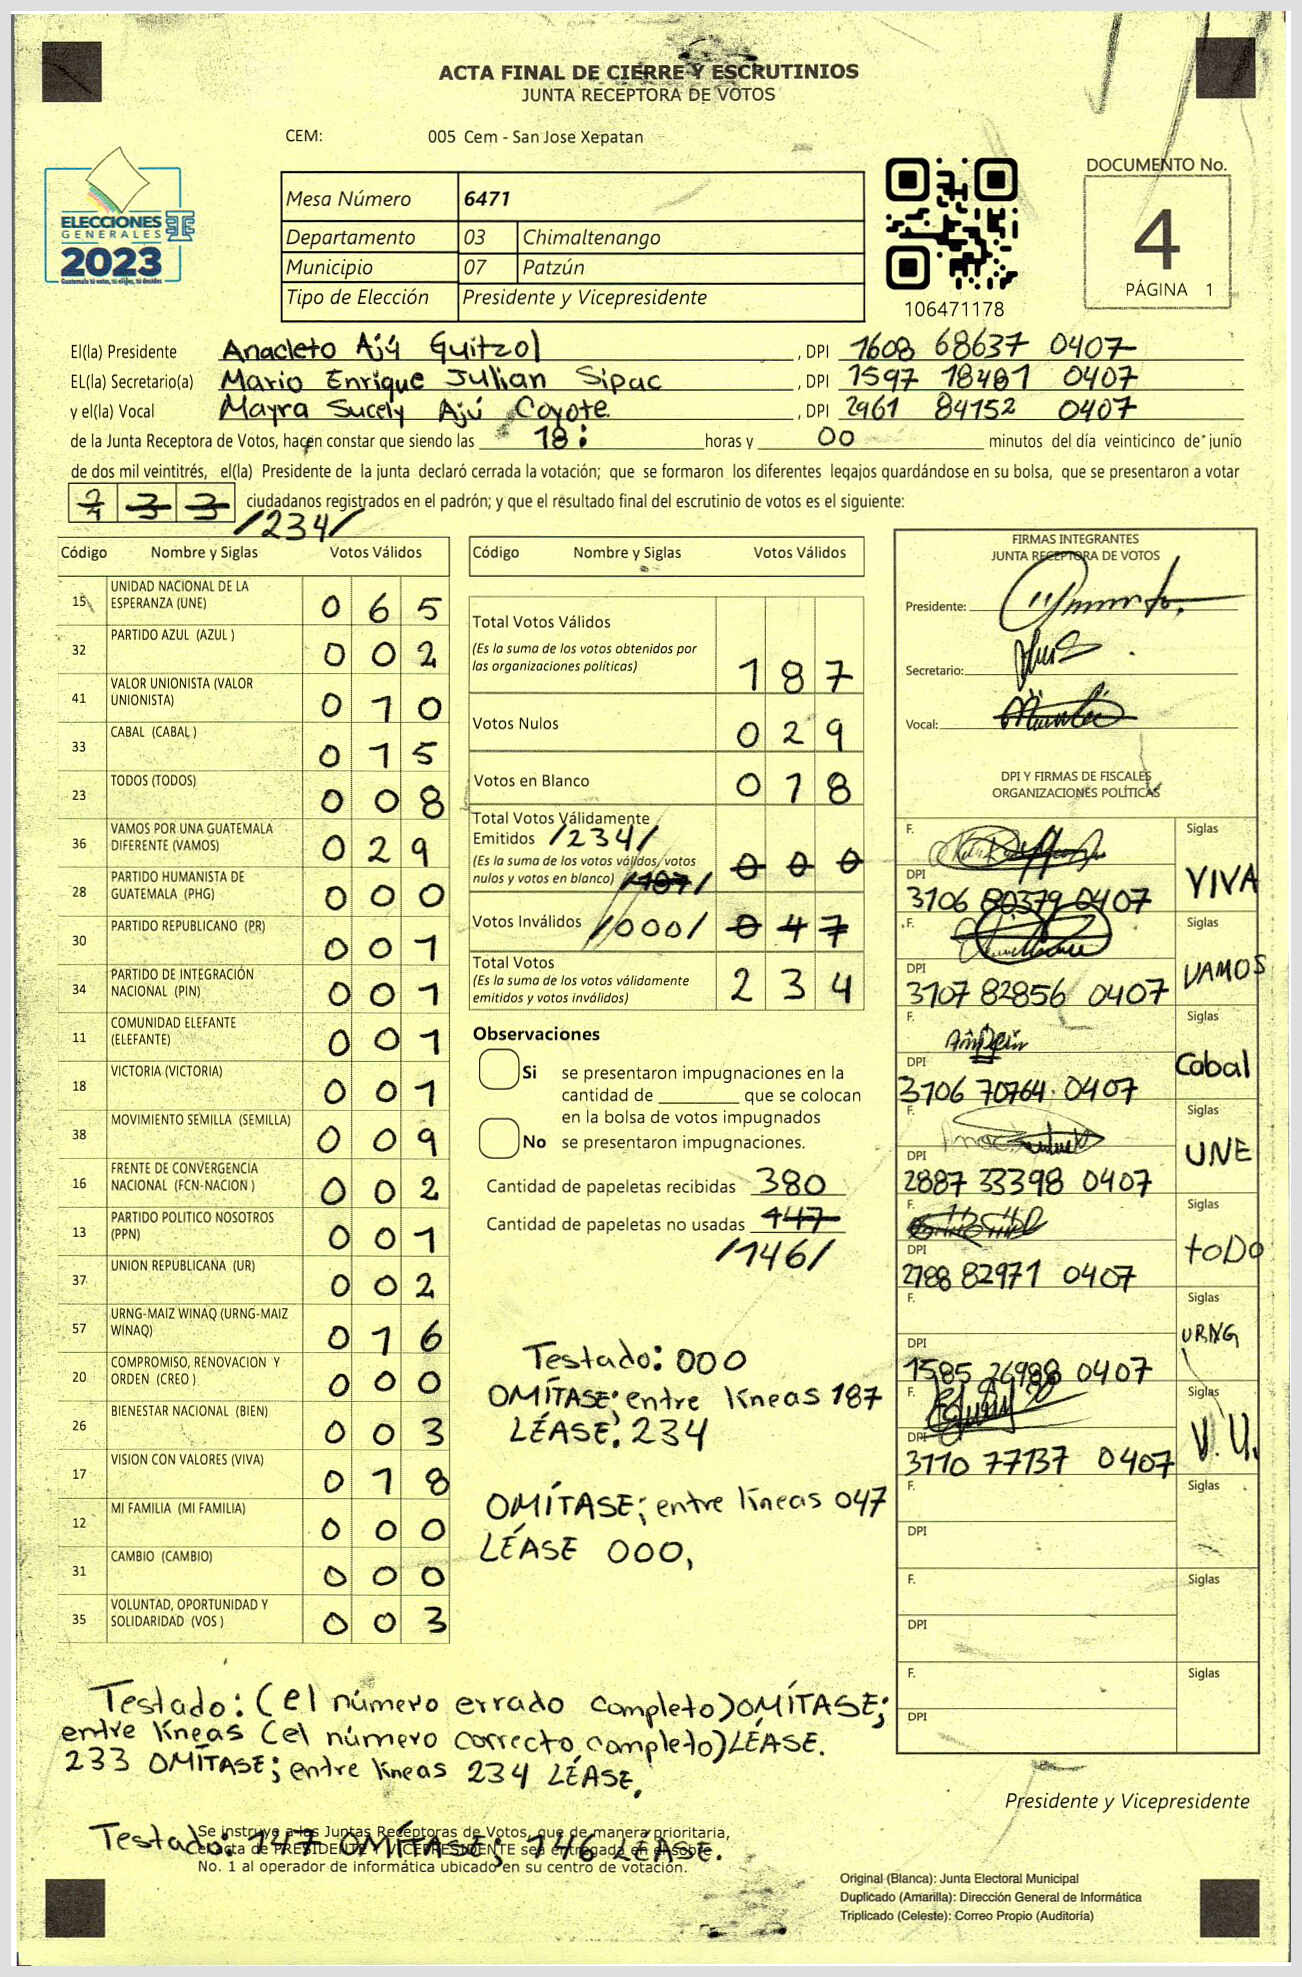 ACTA FINAL DE CIERRE Y ESCRUTINIOS
JUNTA RECEPTORA DE VOTOS
CEM: 005 Cem - San Jose Xepatan
ELECCIONES
GENERALES
2023
Guatemala tú votas, tú eliges, tú decides
Mesa Número 6471
Departamento 03 Chimaltenango
Municipio 07 Patzún
Tipo de Elección Presidente y Vicepresidente
106471178
DOCUMENTO No.
4
PÁGINA 1
El(la) Presidente Anacleto Ajú Guitzol , DPI 1608 68637 0407
EL(la) Secretario(a) Mario Enrique Julian Sipac , DPI 1597 18481 0407
y el(la) Vocal Mayra Sucely Ajú Coyote , DPI 2961 84152 0407
de la Junta Receptora de Votos, hacen constar que siendo las 18: horas y 00 minutos del día veinticinco de junio
de dos mil veintitrés, el(la) Presidente de la junta declaró cerrada la votación; que se formaron los diferentes legajos guardándose en su bolsa, que se presentaron a votar
2 3 3 ciudadanos registrados en el padrón; y que el resultado final del escrutinio de votos es el siguiente:
/234/
Código Nombre y Siglas Votos Válidos
15 UNIDAD NACIONAL DE LA ESPERANZA (UNE) 0 6 5
32 PARTIDO AZUL (AZUL ) 0 0 2
41 VALOR UNIONISTA (VALOR UNIONISTA) 0 1 0
33 CABAL (CABAL ) 0 1 5
23 TODOS (TODOS) 0 0 8
36 VAMOS POR UNA GUATEMALA DIFERENTE (VAMOS) 0 2 9
28 PARTIDO HUMANISTA DE GUATEMALA (PHG) 0 0 0
30 PARTIDO REPUBLICANO (PR) 0 0 1
34 PARTIDO DE INTEGRACIÓN NACIONAL (PIN) 0 0 1
11 COMUNIDAD ELEFANTE (ELEFANTE) 0 0 1
18 VICTORIA (VICTORIA) 0 0 1
38 MOVIMIENTO SEMILLA (SEMILLA) 0 0 9
16 FRENTE DE CONVERGENCIA NACIONAL (FCN-NACION ) 0 0 2
13 PARTIDO POLITICO NOSOTROS (PPN) 0 0 1
37 UNION REPUBLICANA (UR) 0 0 2
57 URNG-MAIZ WINAQ (URNG-MAIZ WINAQ) 0 1 6
20 COMPROMISO, RENOVACION Y ORDEN (CREO ) 0 0 0
26 BIENESTAR NACIONAL (BIEN) 0 0 3
17 VISION CON VALORES (VIVA) 0 1 8
12 MI FAMILIA (MI FAMILIA) 0 0 0
31 CAMBIO (CAMBIO) 0 0 0
35 VOLUNTAD, OPORTUNIDAD Y SOLIDARIDAD (VOS ) 0 0 3
Código Nombre y Siglas Votos Válidos
Total Votos Válidos
(Es la suma de los votos obtenidos por
las organizaciones políticas) 1 8 7
Votos Nulos 0 2 9
Votos en Blanco 0 1 8
Total Votos Válidamente
Emitidos /234/
(Es la suma de los votos válidos, votos 0 0 0
nulos y votos en blanco) /187/
Votos Inválidos /000/ 0 4 7
Total Votos
(Es la suma de los votos válidamente 2 3 4
emitidos y votos inválidos)
Observaciones
Si se presentaron impugnaciones en la
cantidad de ________ que se colocan
en la bolsa de votos impugnados
No se presentaron impugnaciones.
Cantidad de papeletas recibidas 380
Cantidad de papeletas no usadas 147
/146/
Testado: 000
OMÍTASE; entre líneas 187
LÉASE. 234
OMÍTASE; entre líneas 047
LÉASE 000,
FIRMAS INTEGRANTES
JUNTA RECEPTORA DE VOTOS
Presidente:
Secretario:
Vocal:
DPI Y FIRMAS DE FISCALES
ORGANIZACIONES POLÍTICAS
F. Siglas
DPI VIVA
3106 80379 0407
F. Siglas
DPI VAMOS
3107 82856 0407
F. Siglas
DPI Cabal
3106 70764 0407
F. Siglas
DPI UNE
2887 33398 0407
F. Siglas
DPI toDO
2788 82971 0407
F. Siglas
DPI URNG
1585 26988 0407
F. Siglas
DPI V.U.
3110 77137 0407
F. Siglas
DPI
F. Siglas
DPI
F. Siglas
DPI
Testado: (el número errado completo) OMÍTASE;
entre líneas (el número correcto completo) LÉASE.
233 OMÍTASE; entre líneas 234 LÉASE.
Testado: 147 OMÍTASE; 146 LÉASE.
Se instruye a las Juntas Receptoras de Votos, que de manera prioritaria,
el acta de PRESIDENTE Y VICEPRESIDENTE sea entregada en el sobre
No. 1 al operador de informática ubicado en su centro de votación.
Presidente y Vicepresidente
Original (Blanca): Junta Electoral Municipal
Duplicado (Amarilla): Dirección General de Informática
Triplicado (Celeste): Correo Propio (Auditoría)